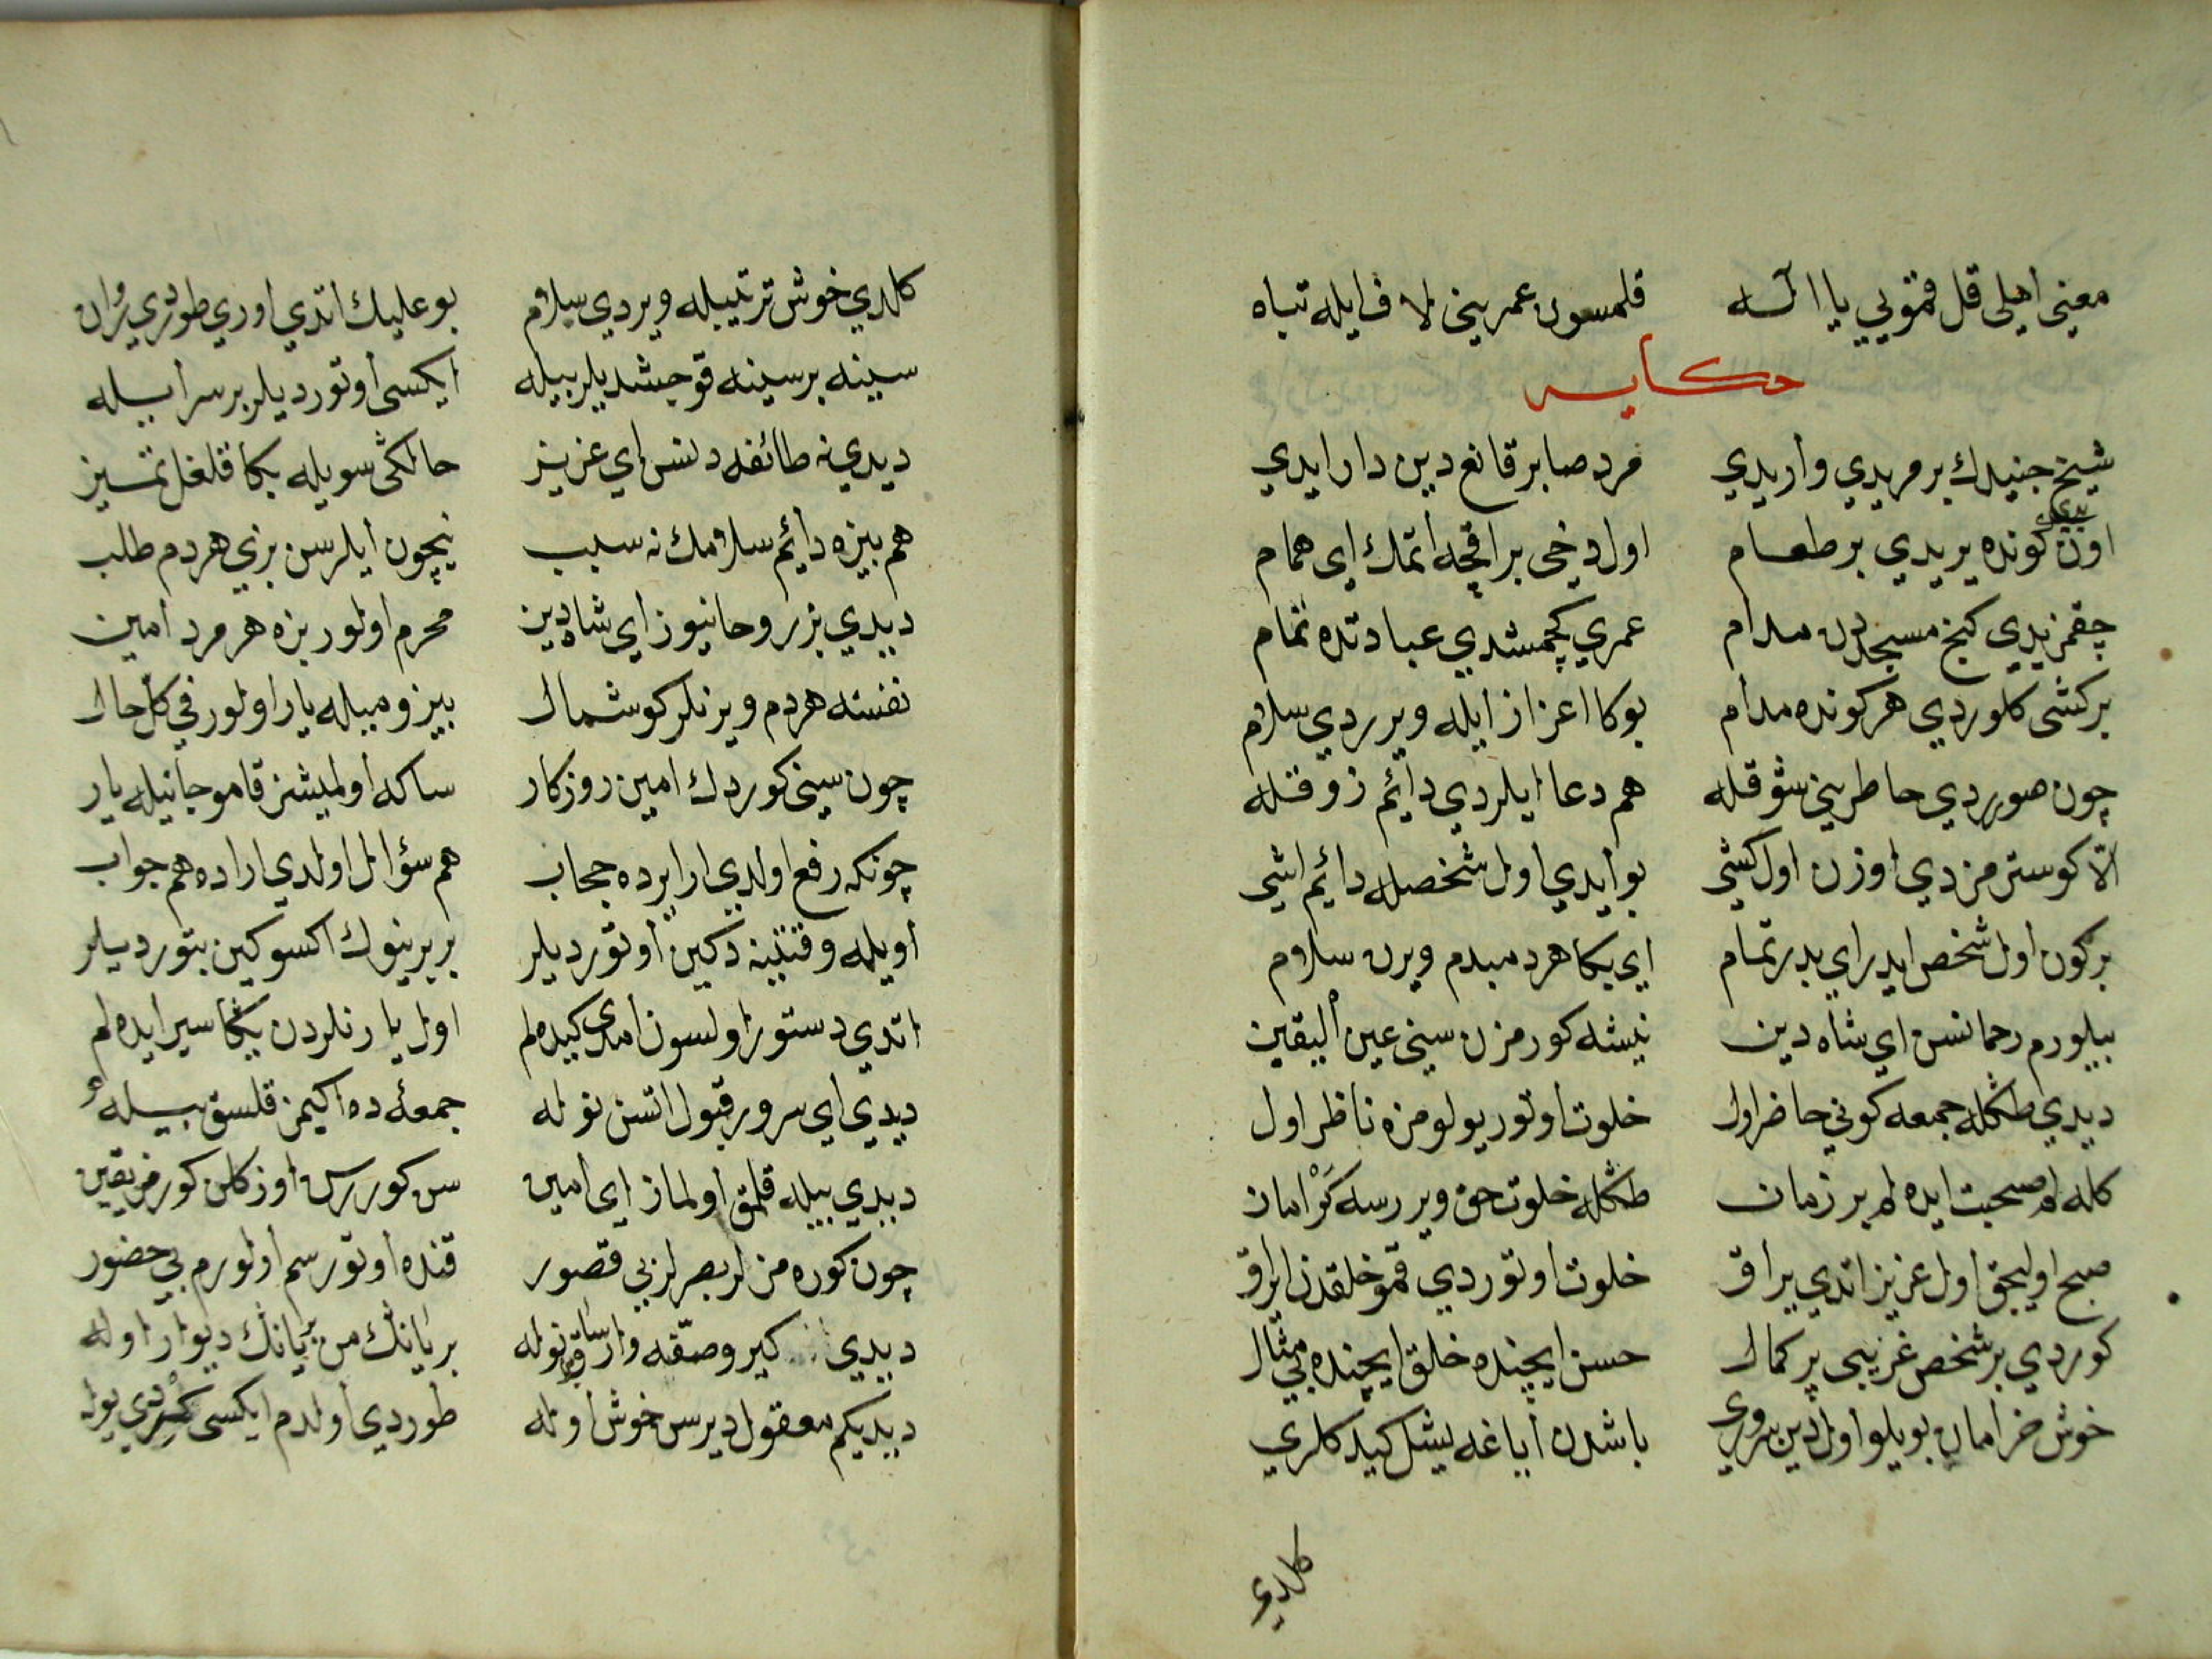 معنى اهلى قل قمويي يا اله قلمسون عمريني لاف ايله تباه
حكايه
شيخ جنيدك بر مريدي واريدي مرد صابر قانع دين دار ايدي
اون كونده يريدي بر طعام اول دخى بر اقچه اتمك اى همام
چقمزيدي كنج مسجددن مدام عمري كچمشدي عبادتده تمام
بر كشى كلوردي هر كونده مدام بوكا اعزاز ايله ويرردي سلام
چون صوردي خاطريني شوقله هم دعا ايلردي دائم ذوقله
الا كوسترمزدي اوزن اول كشى بو ايدي اول شخصله دائم اشى
بر كون اول شخص ايدر اي بدر تمام اي بكا هر دمبدم ويرن سلام
بيلورم رحمانسن اي شاه دين نيشه كورمزن سني عين اليقين
ديدي طكله جمعه كوني حاضر اول خلوت اوتور يولومزه ناظر اول
كله لم صحبت ايده لم بر زمان طكله خلوت حق ويررسه كر امان
صبح اوليجق اول عزيز اتدي يراق خلوت اوتوردي قمو خلقدن ايراق
كوردي بر شخص غريبي پر كمال حسن ايچنده خلق ايچنده بي مثال
خوش خرامان بويلو اول دين سروري باشدن اياغه يشل كيدكلري
كلدي
كلدي خوش ترتيبله ويردي سلام بو عليك اتدي اوري طوردي روان
سينه بر سينه قوجشديلر بيله ايكسى اوتورديلر بر سرايله
ديدي نه طائفه دنسن اي عزيز حالكى سويله بكا قلغل تميز
هم بيزه دائم سلامك نه سبب نيچون ايلرسن بزي هر دم طلب
ديدي بز روحانيوز اي شاه دين محرم اولور بزه هر مرد امين
نفسنه هر دم ويرنلر كوشمال بيزومبيله يار اولور في كل حال
چون سيني كوردك امين روزكار ساكه اولميشز قامو جانيله يار
چونكه رفع اولدي ارالرده حجاب هم سؤال اولدي اراده هم جواب
اويله وقتنه دكين اوتورديلر بربرينوك اكسوكين بتورديلر
اتدي دستور اولسون امدى كيده لم اول يارنلردن يكا سير ايده لم
ديدي اي سرور قبول اتسن نوله جمعه ده ايكيمز قلسق بيله
ديدي بيله قلمق اولماز اي امين سن كوررسن اوزكلر كورمز يقين
چون كوره مزلر بصرلر بي قصور قنده اوتورسم اولورم بي حضور
ديدي كير وصفه وارساق نوله بر يانك من بر يانك ديوار اوله
ديديكم معقول ديرسن خوش اوله طوردي اولدم ايكسى كردي يوله